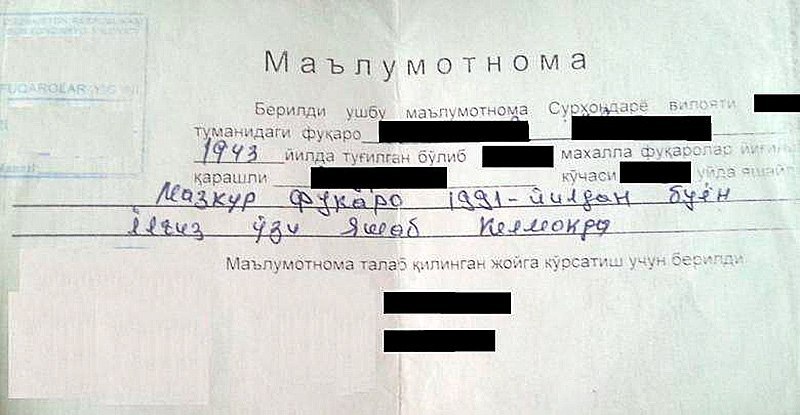 FUQAROLAR
Маълумотнома
Берилди ушбу маълумотнома Сурхондарё вилояти
туманидаги фуқаро
1943 йилда туғилган бўлиб махалла фуқаролар йиғин
қарашли кўчаси уйда яшай
Мазкур фуқаро 1991-йилдан буён
ёлғиз ўзи яшаб келмокда
Маълумотнома талаб қилинган жойга кўрсатиш учун берилди